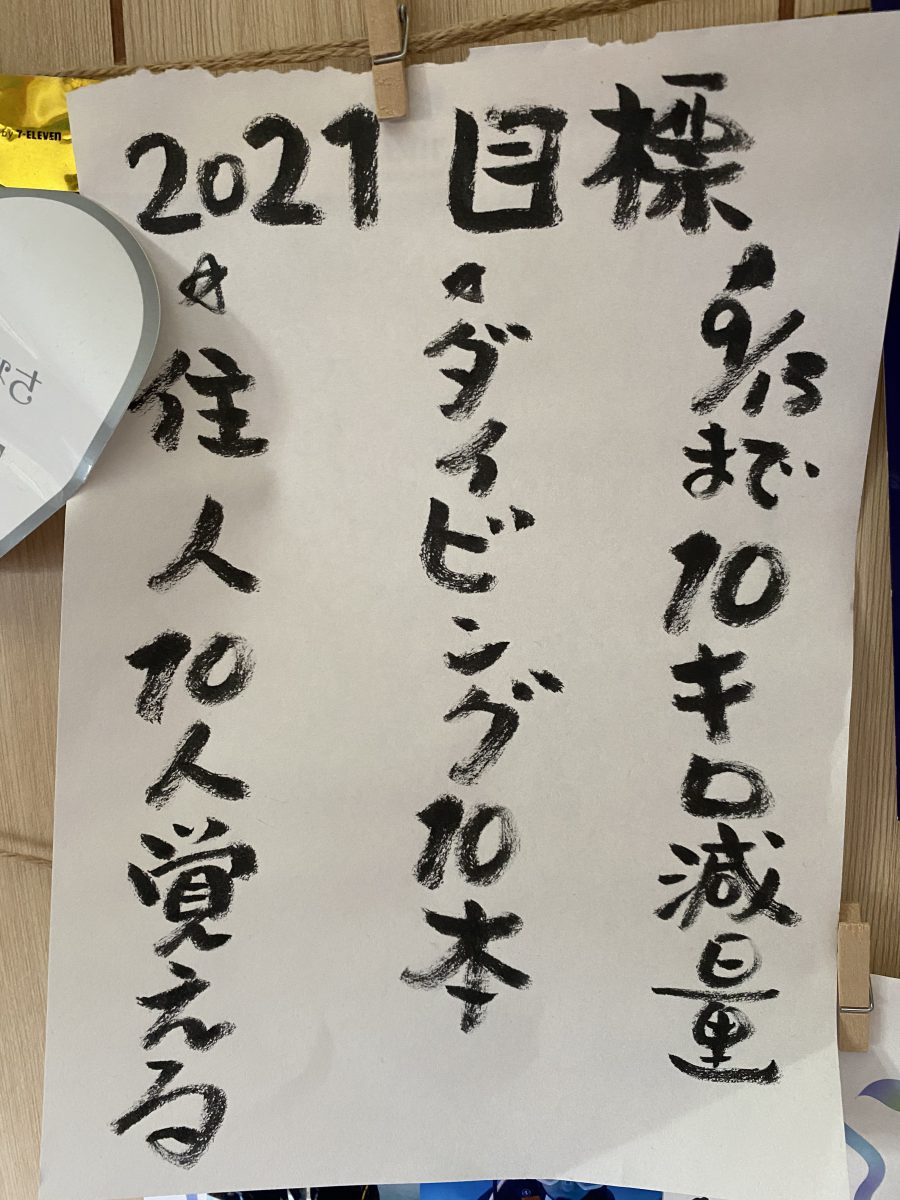 2021 目標
・9/15まで10キロ減量
・ダイビング10本
・住人10人覚える
by 7-ELEVEN